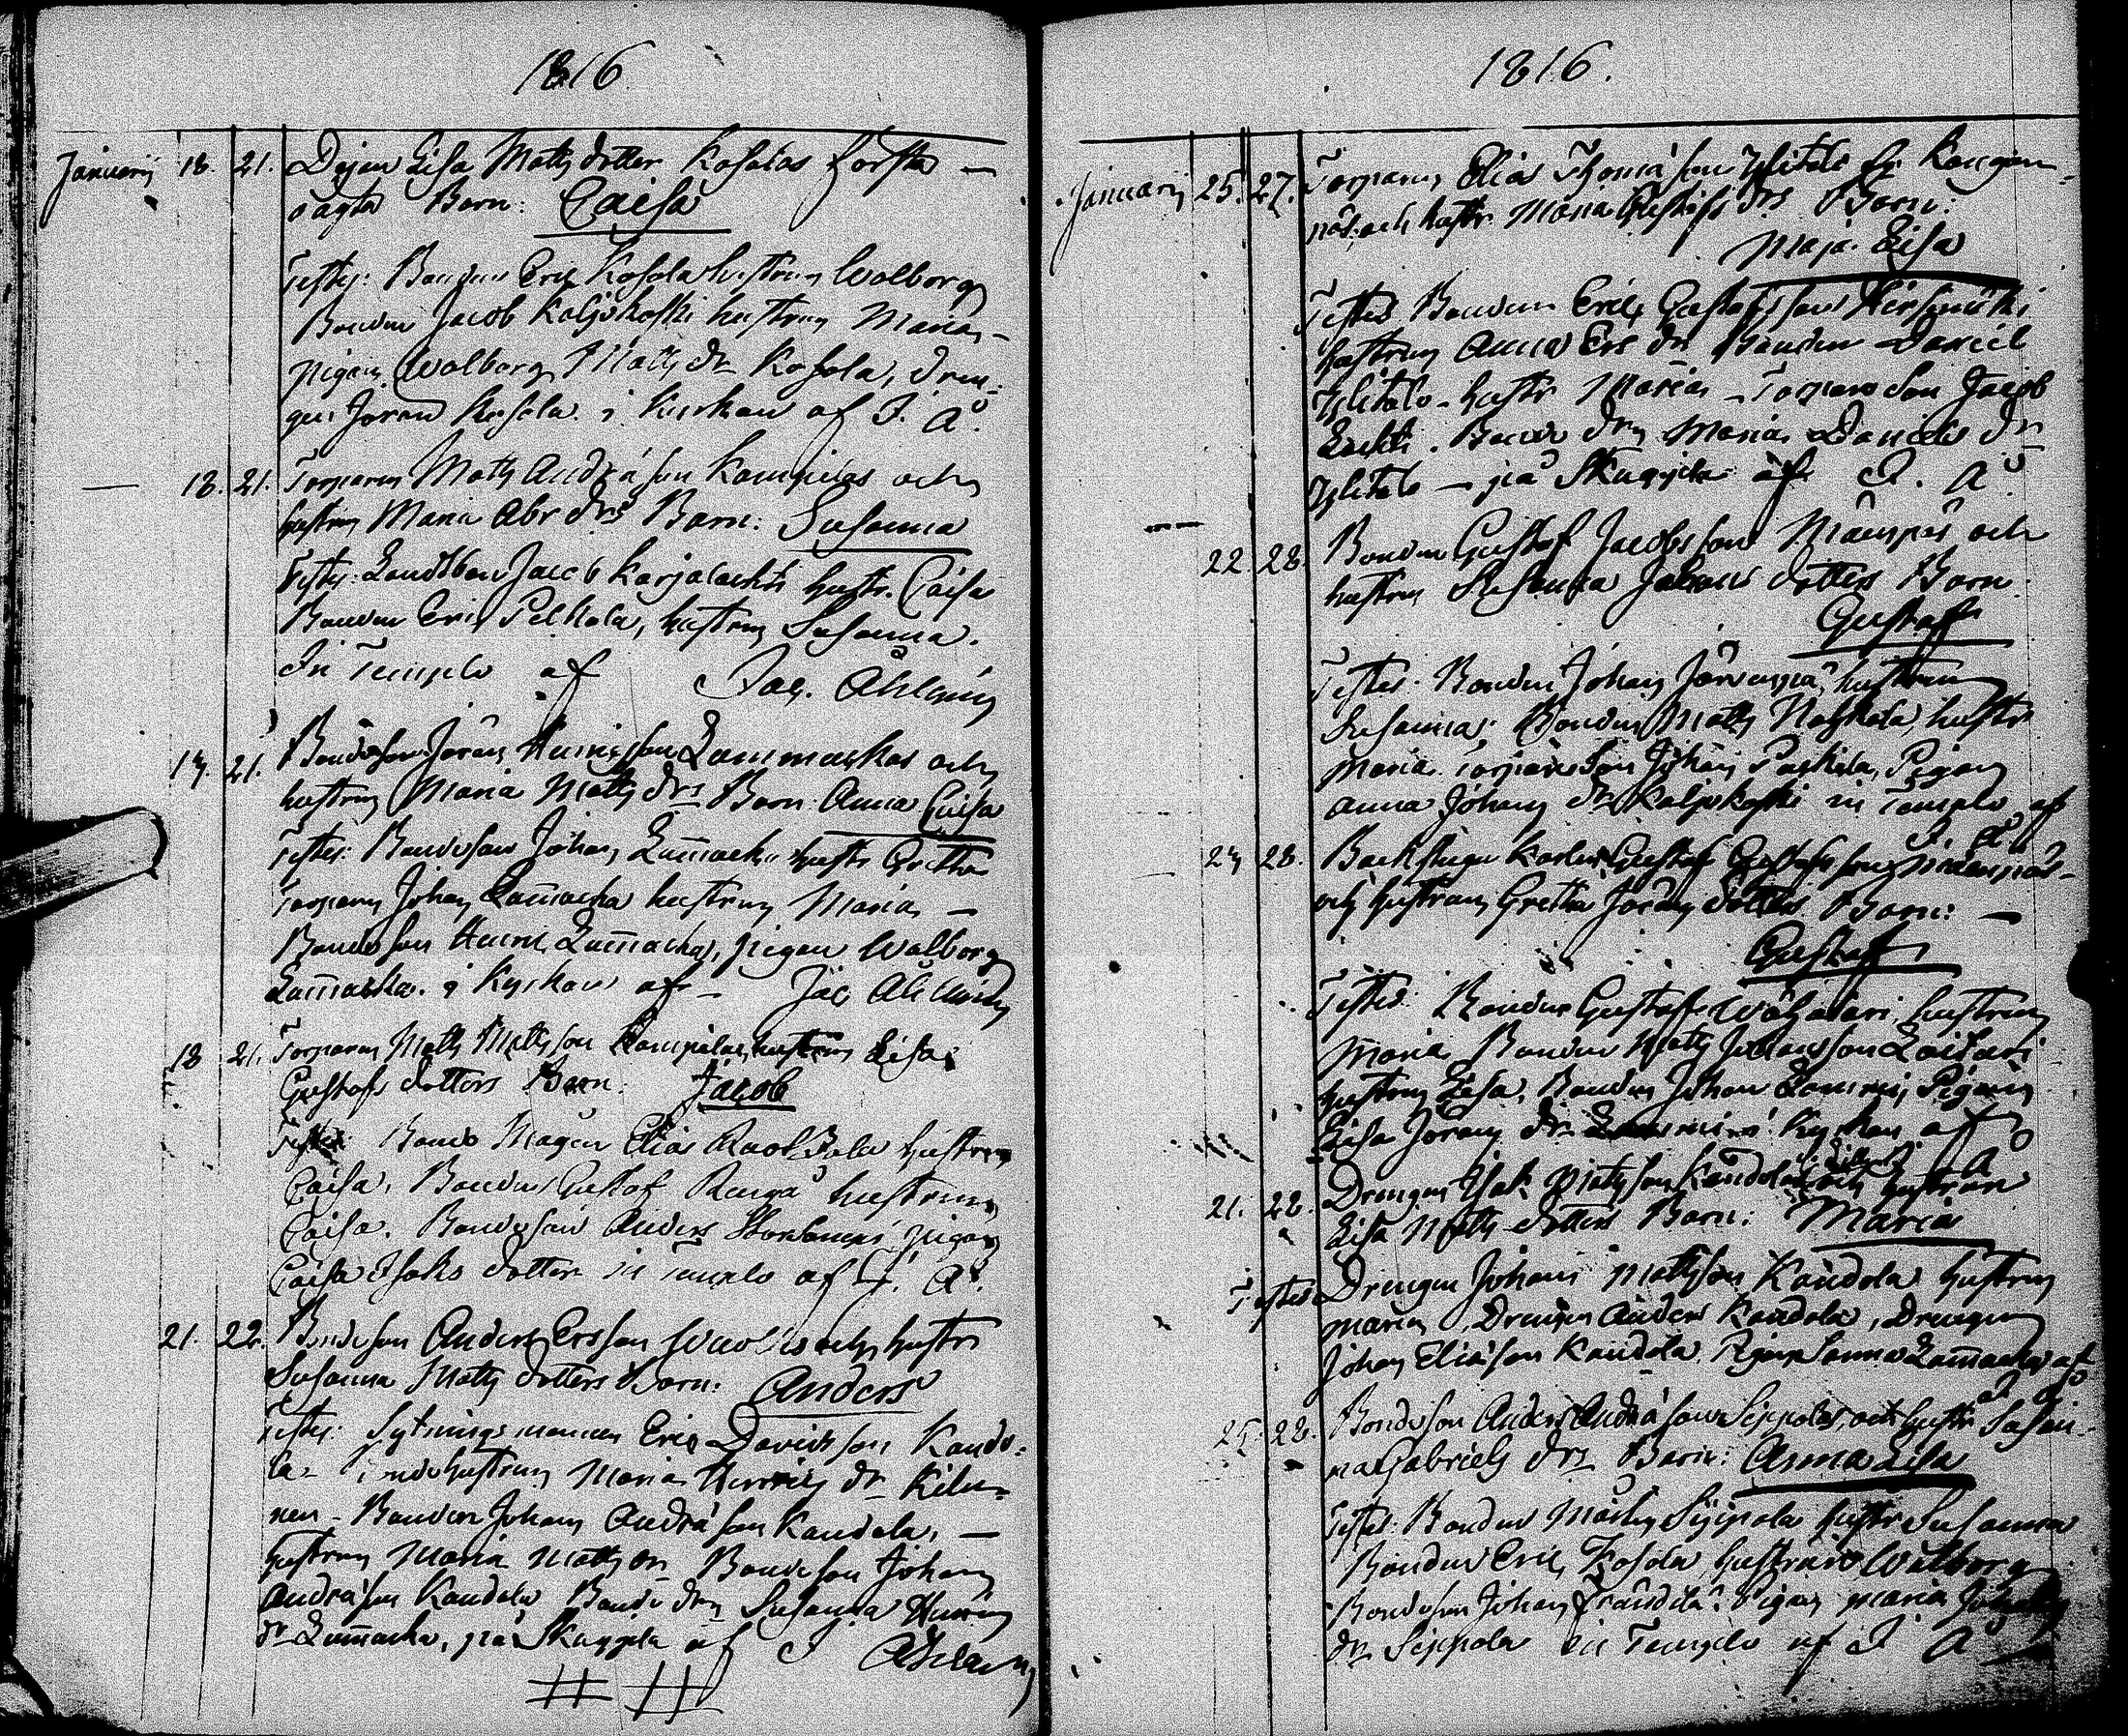 1816
Januarij 18. 21. Dejan Lisa Matts dotter Kosolas första —
oägta Barn: Caisa
Testes: Bonden Eric Kosola hustrun Wolborg
Bonden Jacob Kaljokoski hustrun Maria —
pigan Wolborg Matts dr Kosola, dren-
gen Jöran Kosola i Kyrkan af J. Å.
— 18. 21. Torparen Matts Andrä son Kampilas och
hustrun Maria Abr drs Barn: Susanna
Testes: Landtbon Jacob Karjalachti hustr. Caisa
Bonden Eric Pelkola, hustrun Susanna.
In Templo af Jac. Ahlming
17. 21. Bondeson Jöran Henricsson Lammaskas och
hustrun Maria Matts drs Barn Anna Caisa
Testes: Bondeson Johan hustr Gretha
Torparen Johan hustrun Maria —
Bondeson Henric pigan Walborg
i Kyrkan af — Jac Ahlming
18 21. Torparen Matts Mattsson Kampilas hustrun Lisa
Gustafs dotters Barn: Jacob
Testes: Bonde Magen Elias hustrun
Caisa, Bonden Gustof hustrun
Caisa. Bondeson Anders pigan
Caisa Isaks dotter in Templo af J. Å.
21. 22. Bondeson Anders Ersson och hustr
Susanna Matts dotters Barn: Anders
Testes: Sytnings mannen Eric Davidsson Kando-
la - Bondehustrun Maria Henrics dr
Bonden Johan Andrä son Kandola, —
hustrun Maria Matts dr Bondeson Johan
Andrä son Kandola Bonde drn Susanna Henrics
dr på Skuggila af J Ahlming
1816.
Januarij 25. 27. Torparen Elias Thomä son Ylitalo fr. Kangan-
pää och hustr. Maria Gustafs drs Barn:
Maja Lisa
Testes Bonden Eric Gustafsson Hirsimäki
hustrun Anna Ers dr Bonden Daniel
Ylitalo - hustr Maria - Torpareson Jacob
Bonde drn Maria Daniels dr
Ylitalo — på Skuggila af J. Å.
— 22. 28. Bonden Gustof Jacobsson Mäenpäs och
hustrun Susanna Johans dotters Barn
Gustaf
Testes: Bonden Johan Järvenpä, hustrun
Susanna. Bonden Matts hustr
Maria Torpareson Johan Paskila, Pigan
Anna Johans dr Kaljokoski in Templo af
J. Å.
27 28. Backstugu Karlen Gustaf Gustafsson
och hustrun Gretha Jörans dotters Barn: —
Gustaf
Testes: Bonden Gustaf hustrun
Maria Bonden Matts Johansson
hustrun Lisa, Bonden Johan Lammi, Pigan
Lisa Jörans dr i Kyrkan af
J. Å
21. 28. Drengen Isak Mattsson Kandolas och hustrun
Lisa Matts dotters Barn: Maria
Testes Drengen Johan Mattsson Kandola hustrun
Maria, Drengen Anders Kandola, Drengen
Johan Eliäson Kandola. Pigan Sanna af
J. Å
25. 28. Bondeson Anders Andrä son Sippolas, och hustr Susan-
na Gabriels drs Barn: Anna Lisa
Testes: Bonden Sippola hustr Susanna
Bonden Eric Kosola, hustrun Walborg
Bondeson Johan Kandola Pigan Maria
dr Sippola in Templo af J. Å